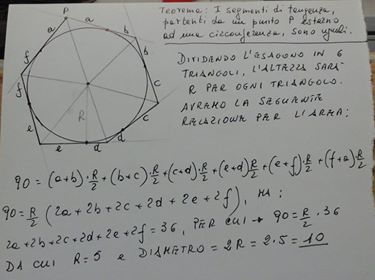 Teorema: I segmenti di tangenza,
partenti da un punto P esterno
ad una circonferenza, sono uguali.
P
a a
f b
f b
R c
e c
e d d
DIVIDENDO L'ESAGONO IN 6
TRIANGOLI, L'ALTEZZA SARÀ
R PER OGNI TRIANGOLO.
AVREMO LA SEGUENTE
RELAZIONE PER L'AREA;
90 = (a+b)·R/2 + (b+c)·R/2 + (c+d)·R/2 + (e+d)R/2 + (e+f)·R/2 + (f+a)R/2
90 = R/2 (2a+2b+2c+2d+2e+2f), MA;
2a+2b+2c+2d+2e+2f = 36, PER CUI → 90 = R/2 · 36
DA CUI R=5 e DIAMETRO = 2R = 2·5 = 10